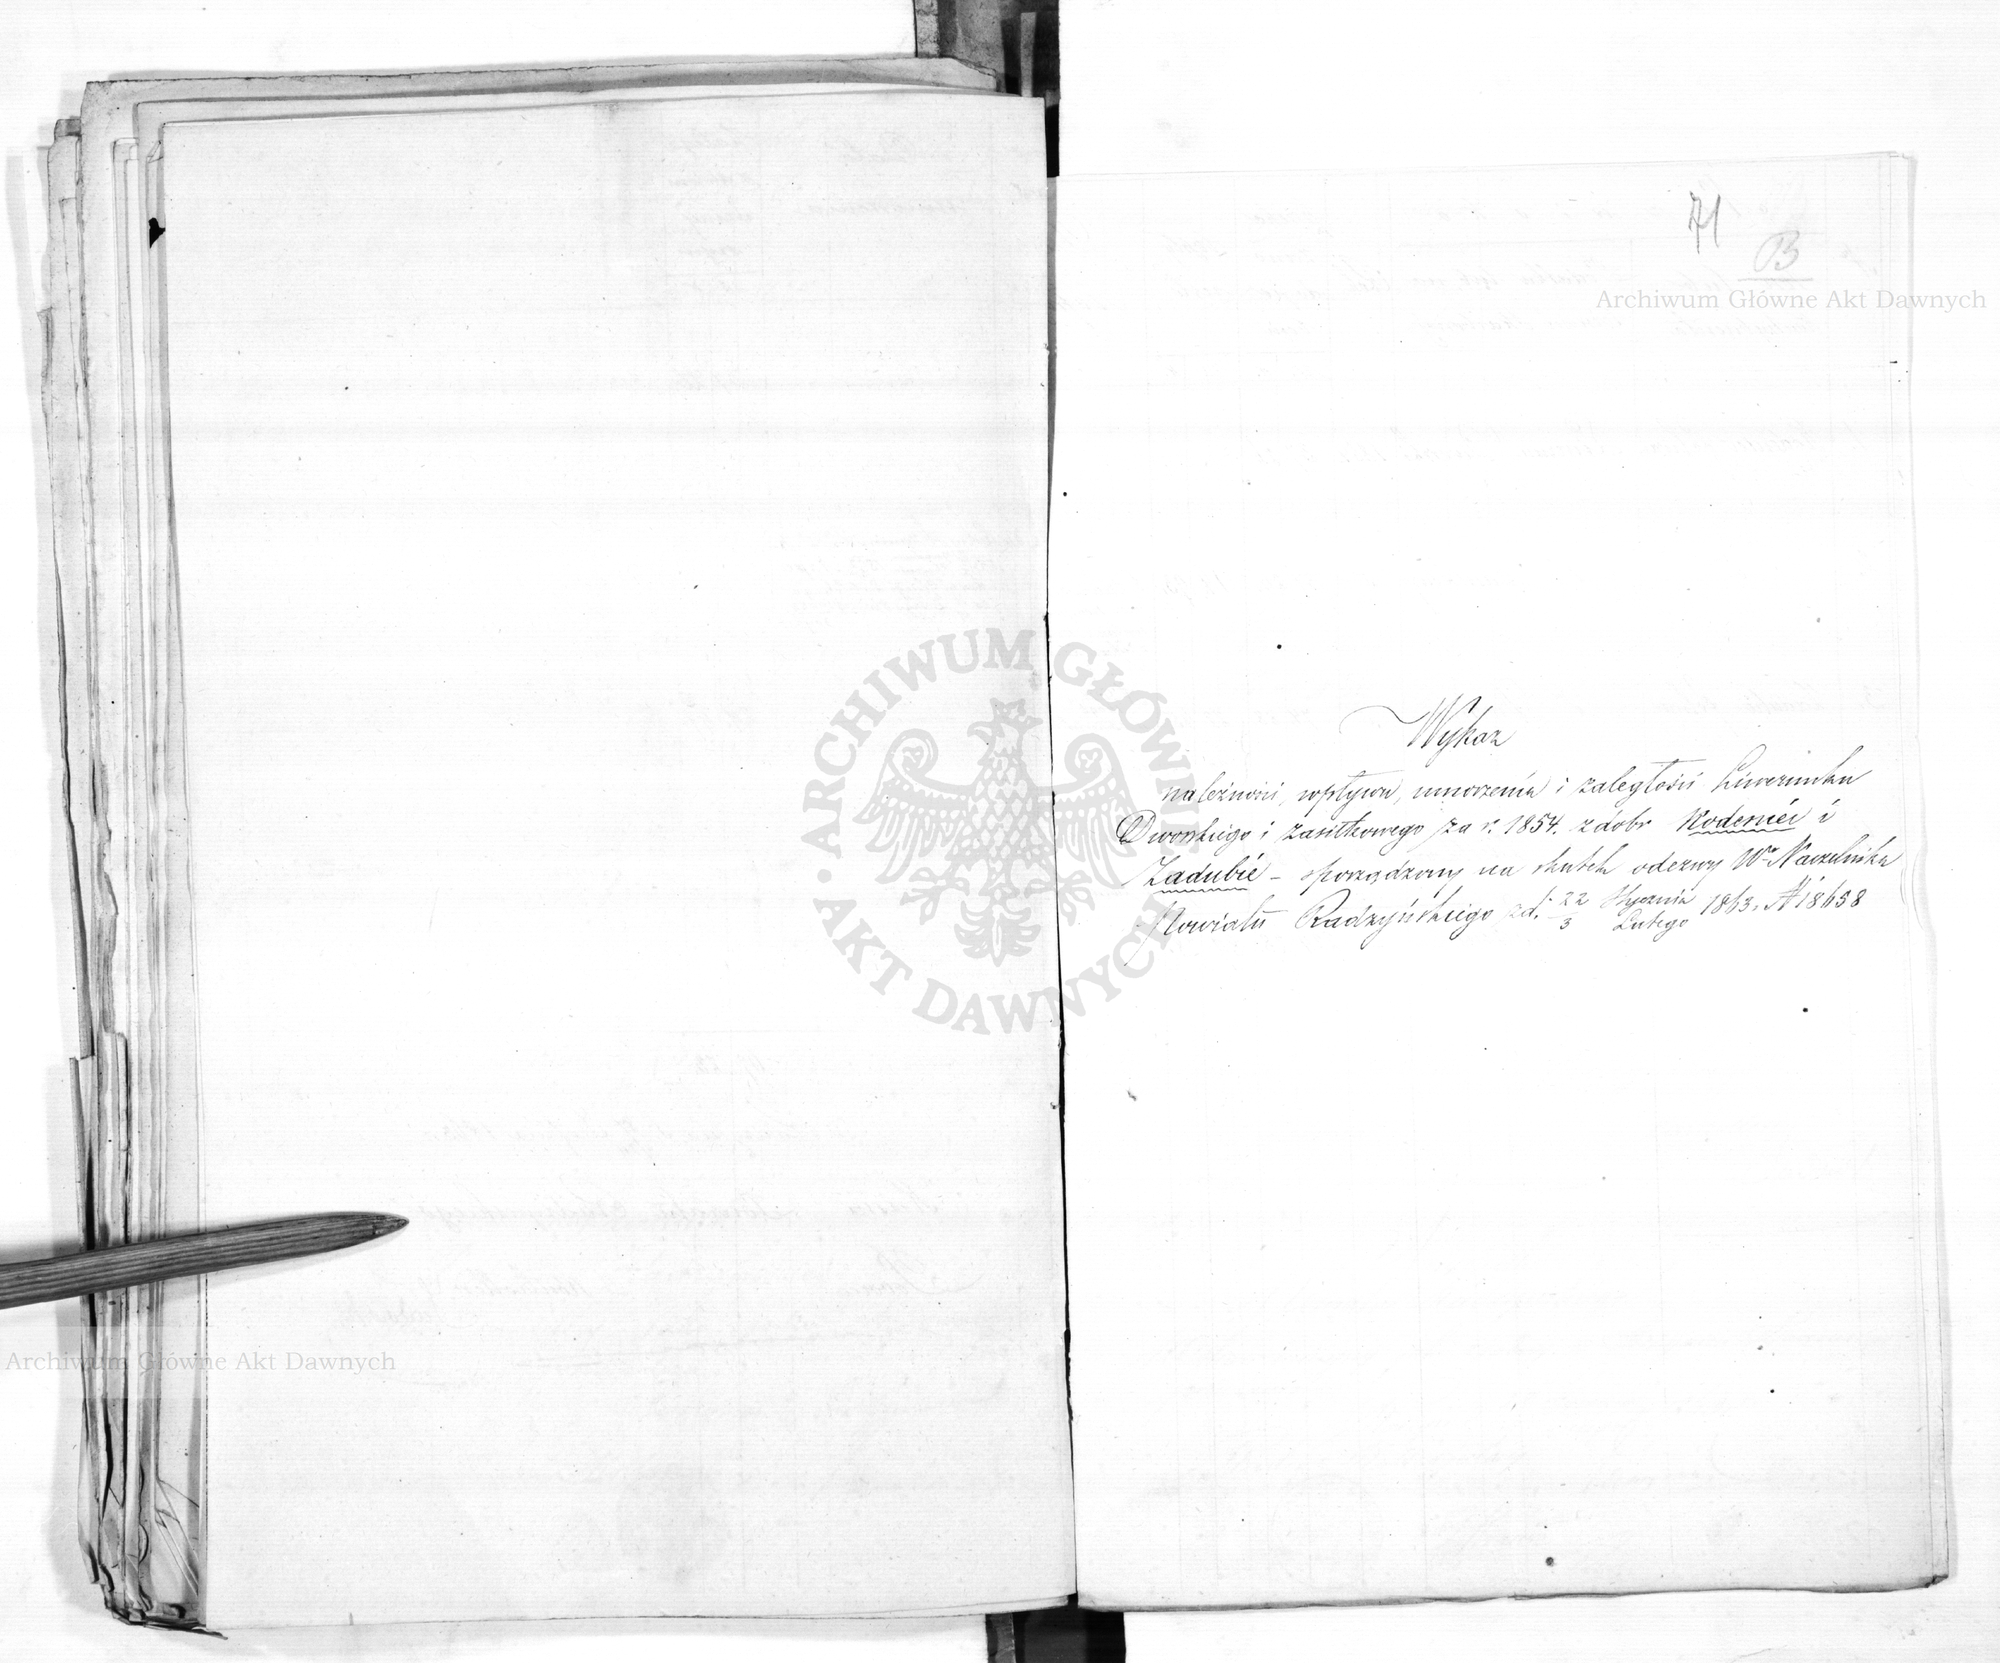 71
B
Wykaz
należności, wpływu, umorzenia i zaległości Liwerunku
Dworskiego i zasiłkowego za r. 1854. z dobr Kodeniec i
Zadubie – sporządzony na skutek odezwy Wo Naczelnika
Powiatu Radzyńskiego z d. 22/3 Stycznia/Lutego 1863. N 18658
Archiwum Główne Akt Dawnych
ARCHIWUM GŁÓWNE AKT DAWNYCH
Archiwum Główne Akt Dawnych